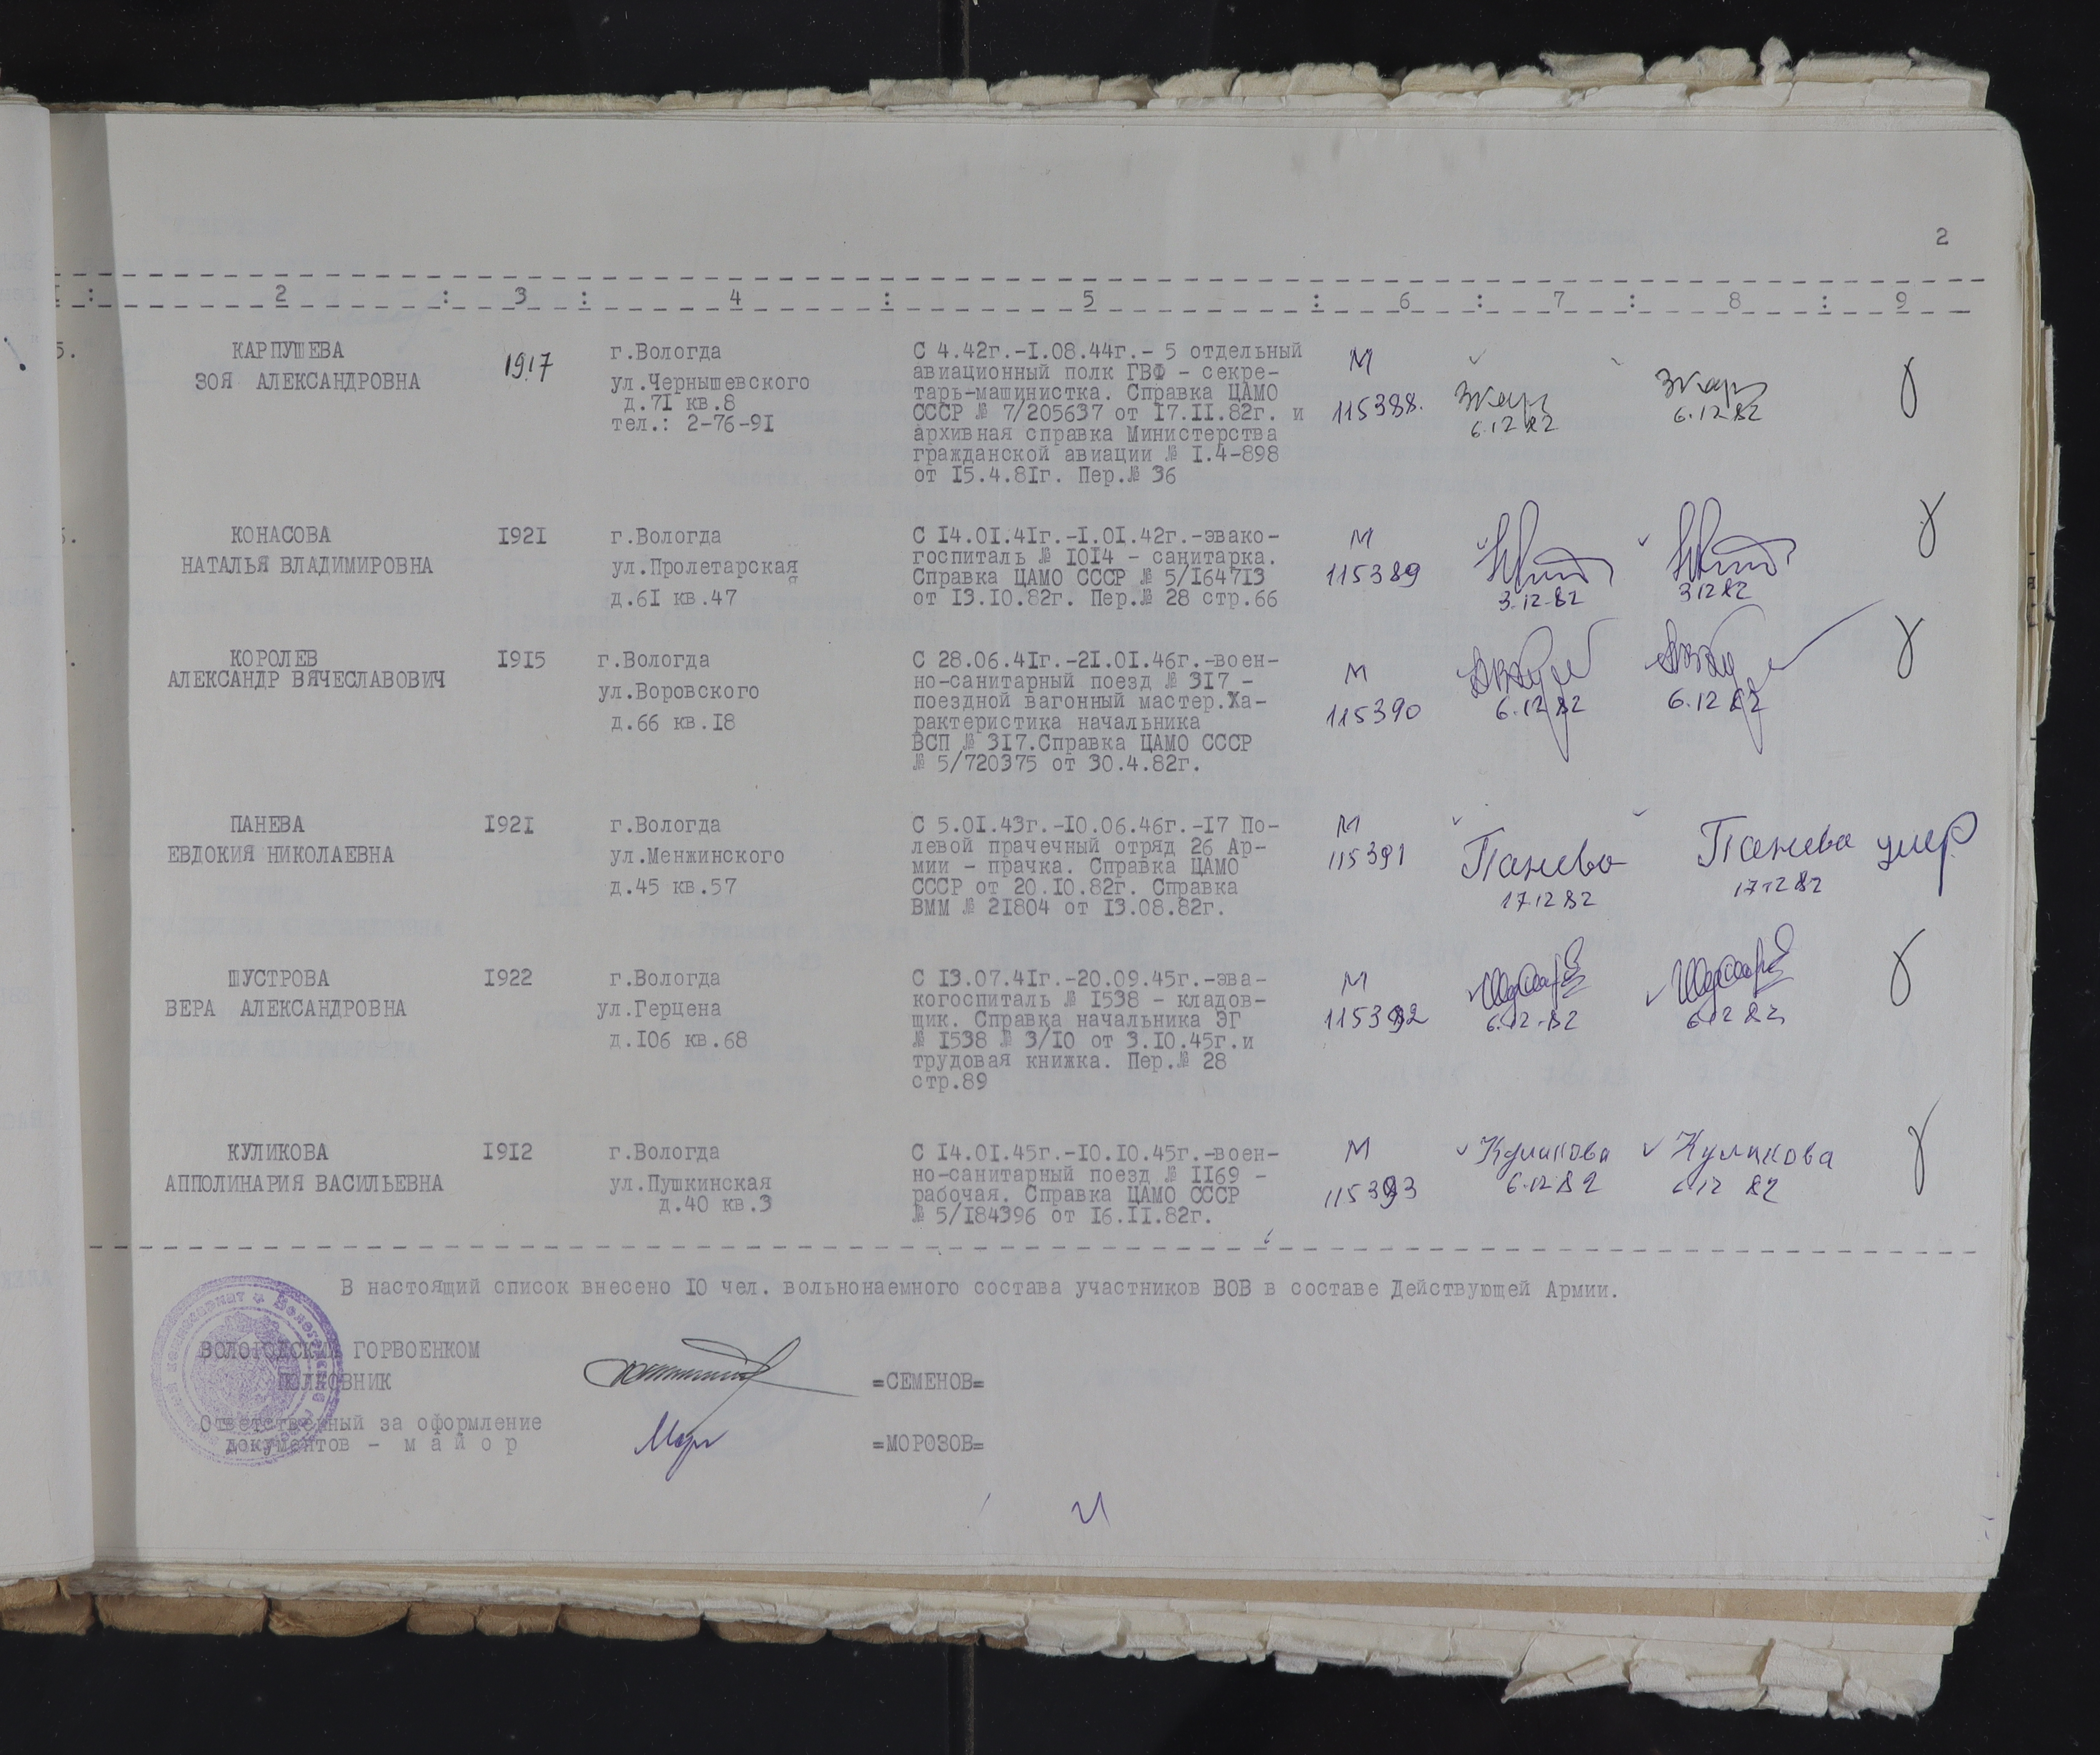 2
2 : 3 : 4 : 5 : 6 : 7 : 8 : 9
КАРПУШЕВА
ЗОЯ АЛЕКСАНДРОВНА
1917
г.Вологда
ул.Чернышевского
д.7I кв.8
тел.: 2-76-9I
С 4.42г.-I.08.44г.- 5 отдельный
авиационный полк ГВФ - секре-
тарь-машинистка. Справка ЦАМО
СССР № 7/205637 от I7.II.82г. и
архивная справка Министерства
гражданской авиации № I.4-898
от I5.4.8Iг. Пер.№ 36
М
115388.
6.12.82
6.12.82
КОНАСОВА
НАТАЛЬЯ ВЛАДИМИРОВНА
I92I
г.Вологда
ул.Пролетарская
я
д.6I кв.47
С I4.0I.4Iг.-I.0I.42г.-эвако-
госпиталь № I0I4 - санитарка.
Справка ЦАМО СССР № 5/I647I3
от I3.I0.82г. Пер.№ 28 стр.66
М
115389
3.12.82
3.12.82
КОРОЛЕВ
АЛЕКСАНДР ВЯЧЕСЛАВОВИЧ
I9I5
г.Вологда
ул.Воровского
д.66 кв.I8
С 28.06.4Iг.-2I.0I.46г.-воен-
но-санитарный поезд № 3I7 -
поездной вагонный мастер.Ха-
рактеристика начальника
ВСП № 3I7.Справка ЦАМО СССР
№ 5/720375 от 30.4.82г.
М
115390
6.12.82
6.12.82
ПАНЕВА
ЕВДОКИЯ НИКОЛАЕВНА
I92I
г.Вологда
ул.Менжинского
д.45 кв.57
С 5.0I.43г.-I0.06.46г.-I7 По-
левой прачечный отряд 26 Ар-
мии - прачка. Справка ЦАМО
СССР от 20.I0.82г. Справка
ВММ № 2I804 от I3.08.82г.
М
115391
Панева
17.12.82
Панева
17.12.82
умер
ШУСТРОВА
ВЕРА АЛЕКСАНДРОВНА
I922
г.Вологда
ул.Герцена
д.I06 кв.68
С I3.07.4Iг.-20.09.45г.-эва-
когоспиталь № I538 - кладов-
щик. Справка начальника ЭГ
№ I538 № 3/I0 от 3.I0.45г.и
трудовая книжка. Пер.№ 28
стр.89
М
115392
6.12.82
6.12.82
КУЛИКОВА
АППОЛИНАРИЯ ВАСИЛЬЕВНА
I9I2
г.Вологда
ул.Пушкинская
д.40 кв.3
С I4.0I.45г.-I0.I0.45г.-воен-
но-санитарный поезд № II69 -
рабочая. Справка ЦАМО СССР
№ 5/I84396 от I6.II.82г.
М
115393
Куликова
6.12.82
Куликова
6.12.82
В настоящий список внесено I0 чел. вольнонаемного состава участников ВОВ в составе Действующей Армии.
ВОЛОГОДСКИЙ ГОРВОЕНКОМ
ПОЛКОВНИК
=СЕМЕНОВ=
Ответственный за оформление
документов - м а й о р
=МОРОЗОВ=